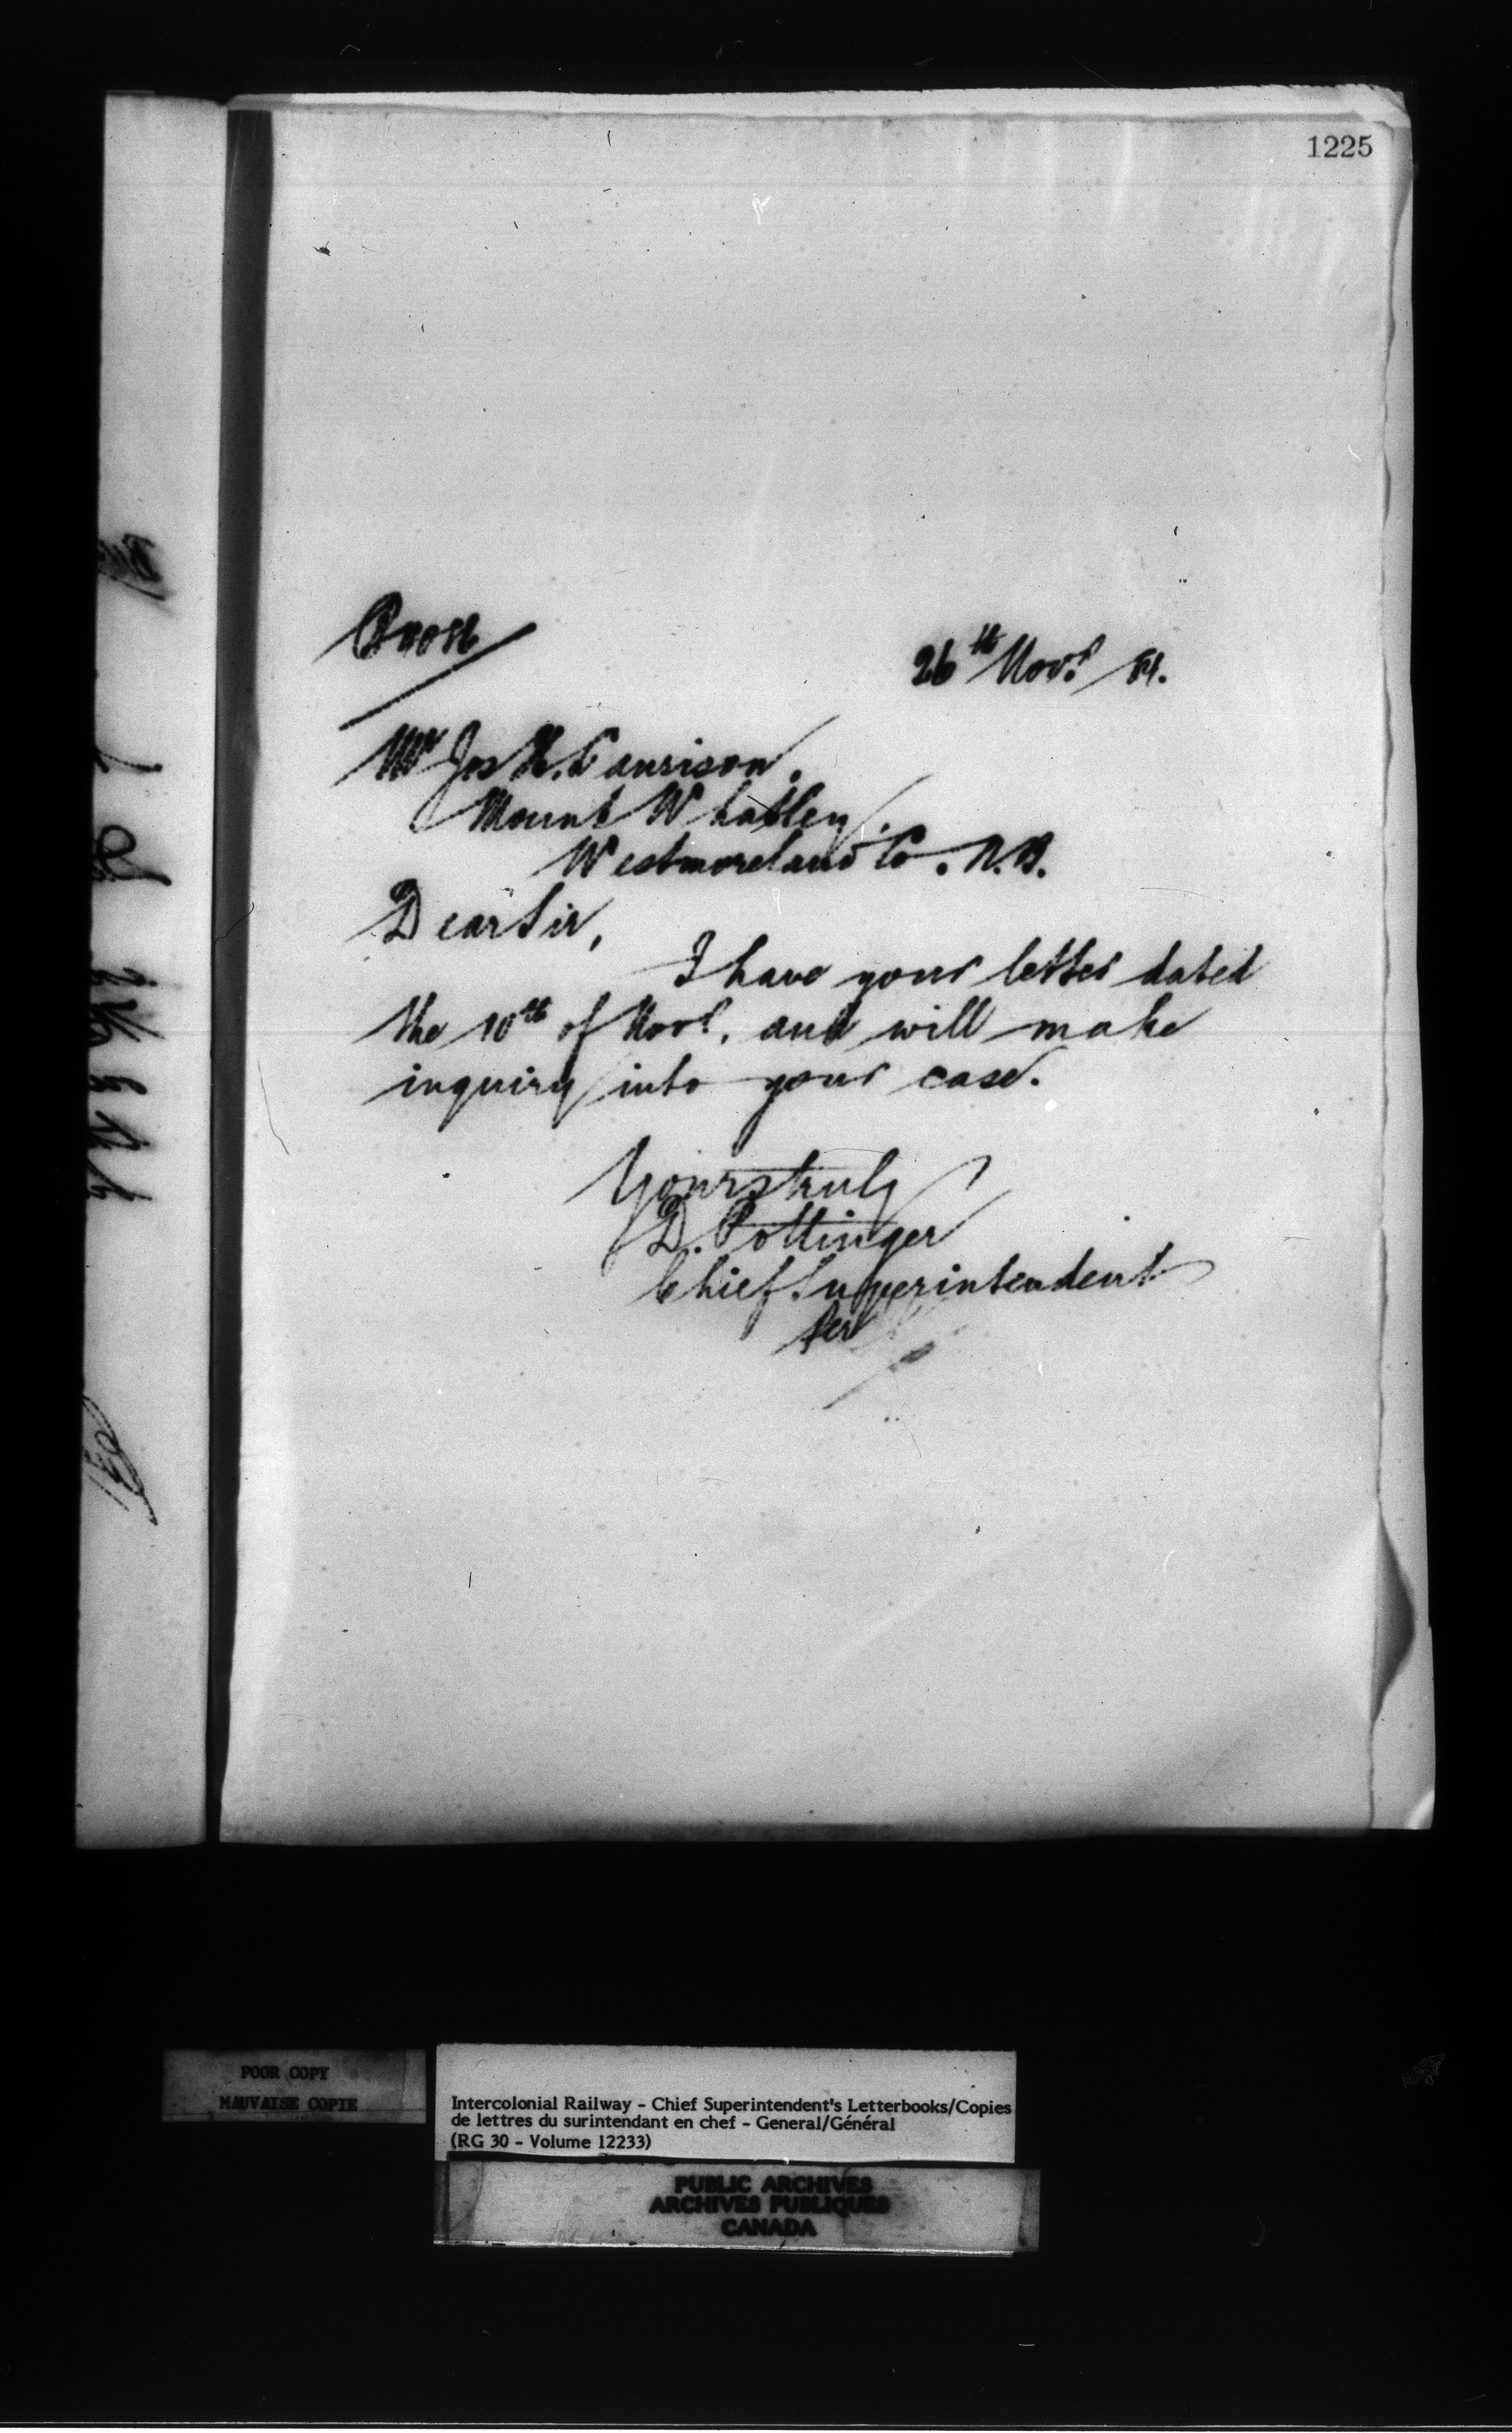 1225
26th Novr 81.
Mr Jos H.
Mount Whatley,
Westmoreland Co. N.B.
Dear Sir,
I have your letter dated
the 10th of Novr, and will make
inquiry into your case.
Yours truly
D. Pottinger
Chief Superintendent
Per
POOR COPY
MAUVAISE COPIE
Intercolonial Railway - Chief Superintendent's Letterbooks/Copies
de lettres du surintendant en chef - General/Général
(RG 30 - Volume 12233)
PUBLIC ARCHIVES
ARCHIVES PUBLIQUES
CANADA